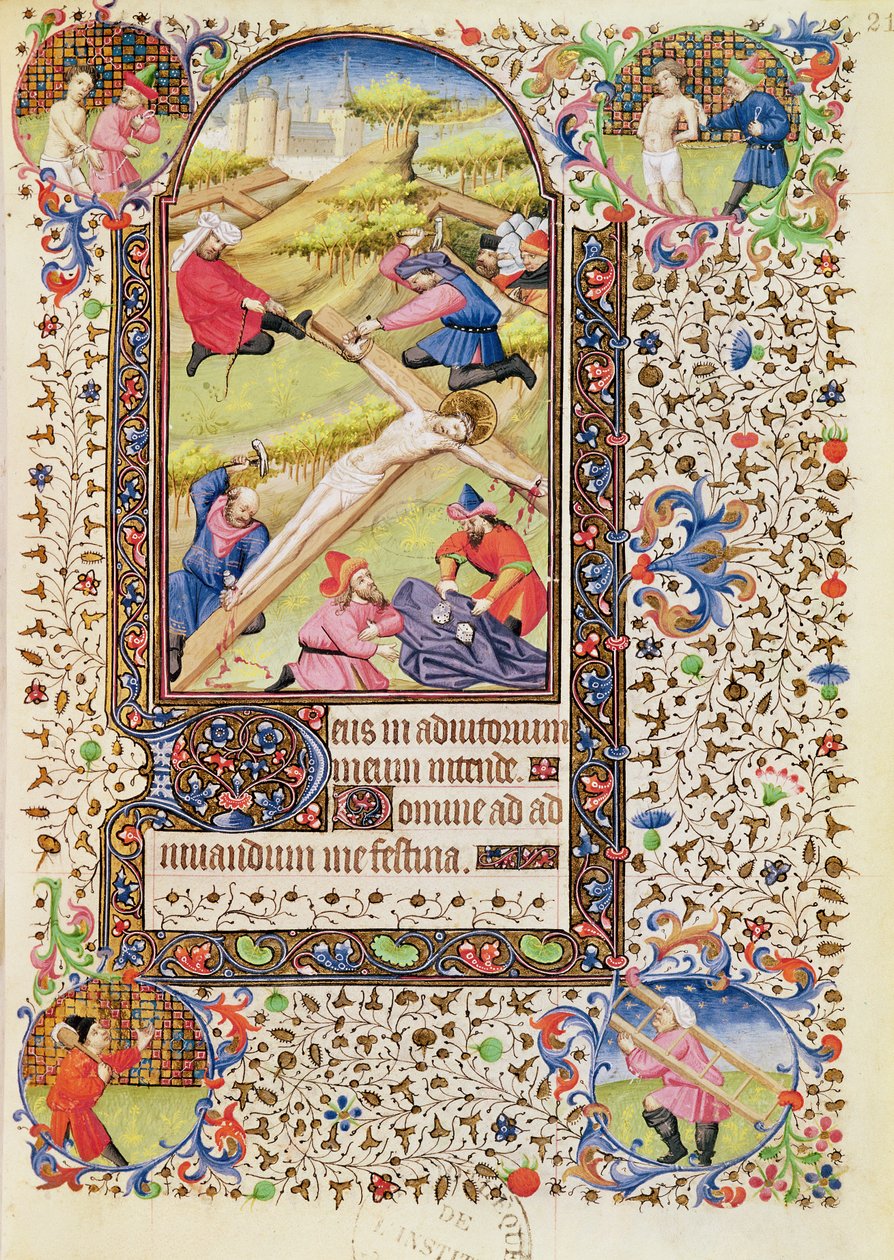 21
Deus in adiutorium
meum intende.
Domine ad ad
iuuandum me festina.
EQUE
DE
L'INSTIT